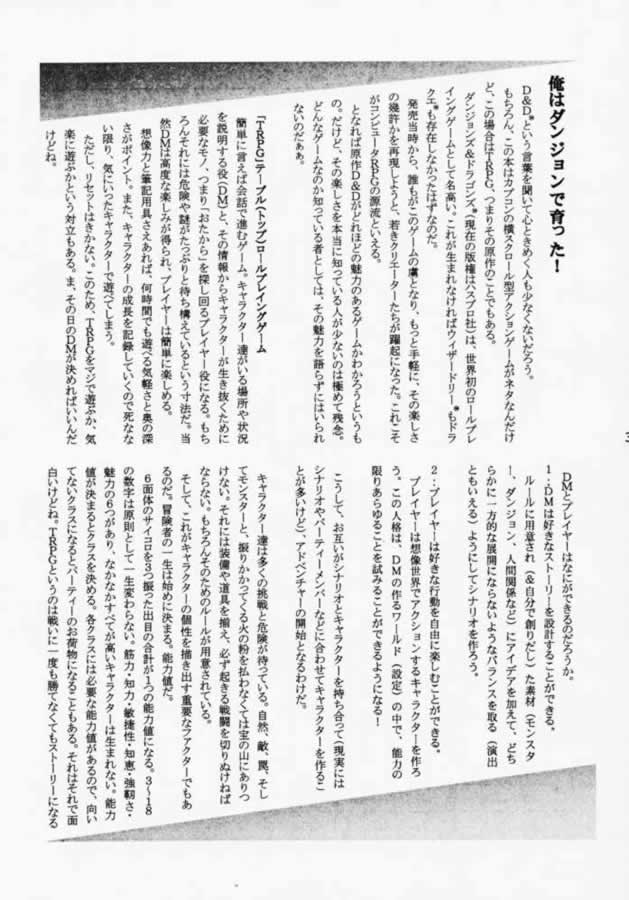 俺はダンジョンで育った！
D&D*という言葉を聞いて心ときめく人も少なくないだろう。
もちろん、この本はカプコンの横スクロール型アクションゲームがネタなんだけ
ど、この場合はTRPG、つまりその原作のことでもある。
ダンジョンズ&ドラゴンズ*(現在の版権はハスブロ社)は、世界初のロールプレ
イングゲームとして名高い。これが生まれなければウィザードリー*もドラ
クエ*も存在しなかったはずなのだ。
発売当時から、誰もがこのゲームの虜となり、もっと手軽に、その楽しさ
の幾許かを再現しようと、若きクリエーターたちが躍起になった。これこそ
がコンピュータRPGの源流といえる。
となれば原作D&Dがどれほどの魅力のあるゲームかわかろうというも
の。だけど、その楽しさを本当に知っている人が少ないのは極めて残念。
どんなゲームなのか知っている者としては、その魅力を語らずにはいられ
ないのだぁぁ。
「TRPG」テーブル(トップ)ロールプレイングゲーム
簡単に言えば会話で進むゲーム。キャラクター達がいる場所や状況
を説明する役(DM)と、その情報からキャラクターが生き抜くために
必要なモノ、つまり「おたから」を探し回るプレイヤー役になる。もち
ろんそれには危険や謎がたっぷりと待ち構えているという寸法だ。当
然DMは高度な楽しみが得られ、プレイヤーは簡単に楽しめる。
想像力と筆記用具さえあれば、何時間でも遊べる気軽さと奥の深
さがポイント。また、キャラクターの成長を記録していくので死なな
い限り、気にいったキャラクターで遊べてしまう。
ただし、リセットはきかない。このため、TRPGをマジで遊ぶか、気
楽に遊ぶかという対立もある。ま、その日のDMが決めればいいんだ
けどね。
DMとプレイヤーはなにができるのだろうか。
1.DMは好きなストーリーを設計することができる。
ルールに用意され(&自分で創りだし)た素材(モンスタ
ー、ダンジョン、人間関係など)にアイデアを加えて、どち
らかに一方的な展開にならないようなバランスを取る(演出
ともいえる)ようにしてシナリオを作ろう。
2.プレイヤーは好きな行動を自由に楽しむことができる。
プレイヤーは想像世界でアクションするキャラクターを作ろ
う。この人格は、DMの作るワールド(設定)の中で、能力の
限りあらゆることを試みることができるようになる！
こうして、お互いがシナリオとキャラクターを持ち合って(現実には
シナリオやパーティーメンバーなどに合わせてキャラクターを作るこ
とが多いけど)、アドベンチャーの開始となるわけだ。
キャラクター達は多くの挑戦と危険が待っている。自然、敵、罠、そし
てモンスターと、振りかかってくる火の粉を払わなくては宝の山にありつ
けない。それには装備や道具を揃え、必ず起きる戦闘を切りぬけねば
ならない。もちろんそのためのルールが用意されている。
そして、これがキャラクターの個性を描き出す重要なファクターでもあ
るのだ。冒険者の一生は始めに決まる。能力値だ。
6面体のサイコロを3つ振った出目の合計が1つの能力値になる。3～18
の数字は原則として一生変わらない。筋力・知力・敏捷性・知恵・強靭さ・
魅力の6つがあり、なかなかすべてが高いキャラクターは生まれない。能力
値が決まるとクラスを決める。各クラスには必要な能力値があるので、向い
てないクラスになるとパーティーのお荷物になることもある。それはそれで面
白いけどね。TRPGというのは戦いに一度も勝てなくてもストーリーになる